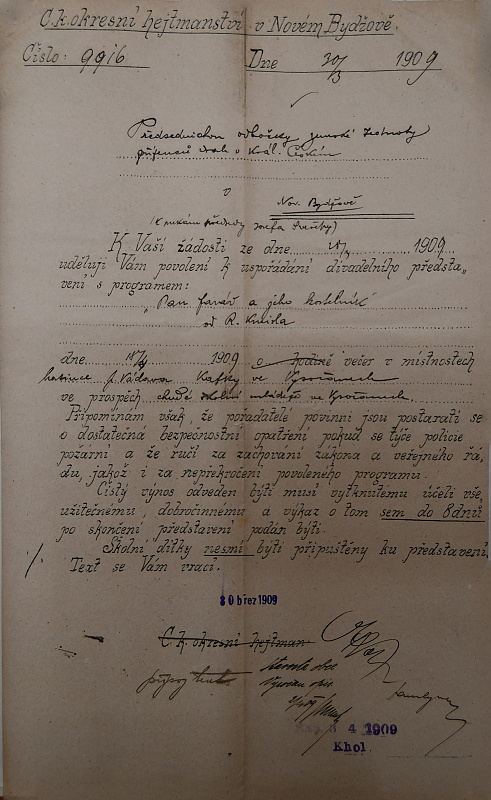 C.k. okresní hejtmanství v Novém Bydžově.
Číslo: 9916 Dne 30/3 1909
Předsednictvu odbočky zemské jednoty
v Král. Českém
v
Nov. Bydžově
(k rukám předsedy Josefa
K Vaší žádosti ze dne 1909
uděluji Vám povolení k uspořádání divadelního předsta„
vení s programem:
„Pan farář a jeho kostelník"
od R. Kneisla
dne 18/4 1909 o hodině večer v místnostech
hostince J. Václava Kafky ve Vysočanech
ve prospěch chudé školní mládeže ve Vysočanech.
Připomínám však, že pořadatelé povinni jsou postarati se
o dostatečná bezpečnostní opatření pokud se týče policie
požární a že ručí za zachování zákona a veřejného řá„
du, jakož i za nepřikročení povoleného programu.
Čistý výnos odveden býti musí vytknutému účeli vše„
užitečnému, dobročinnému a výkaz o tom sem do 8 dnů
po skončení představení podán býti.
Školní dítky nesmí býti připuštěny ku představení.
Text se Vám vrací.
30 břez 1909
C. k. okresní hejtman
starosta obce
4 1909
Khol.